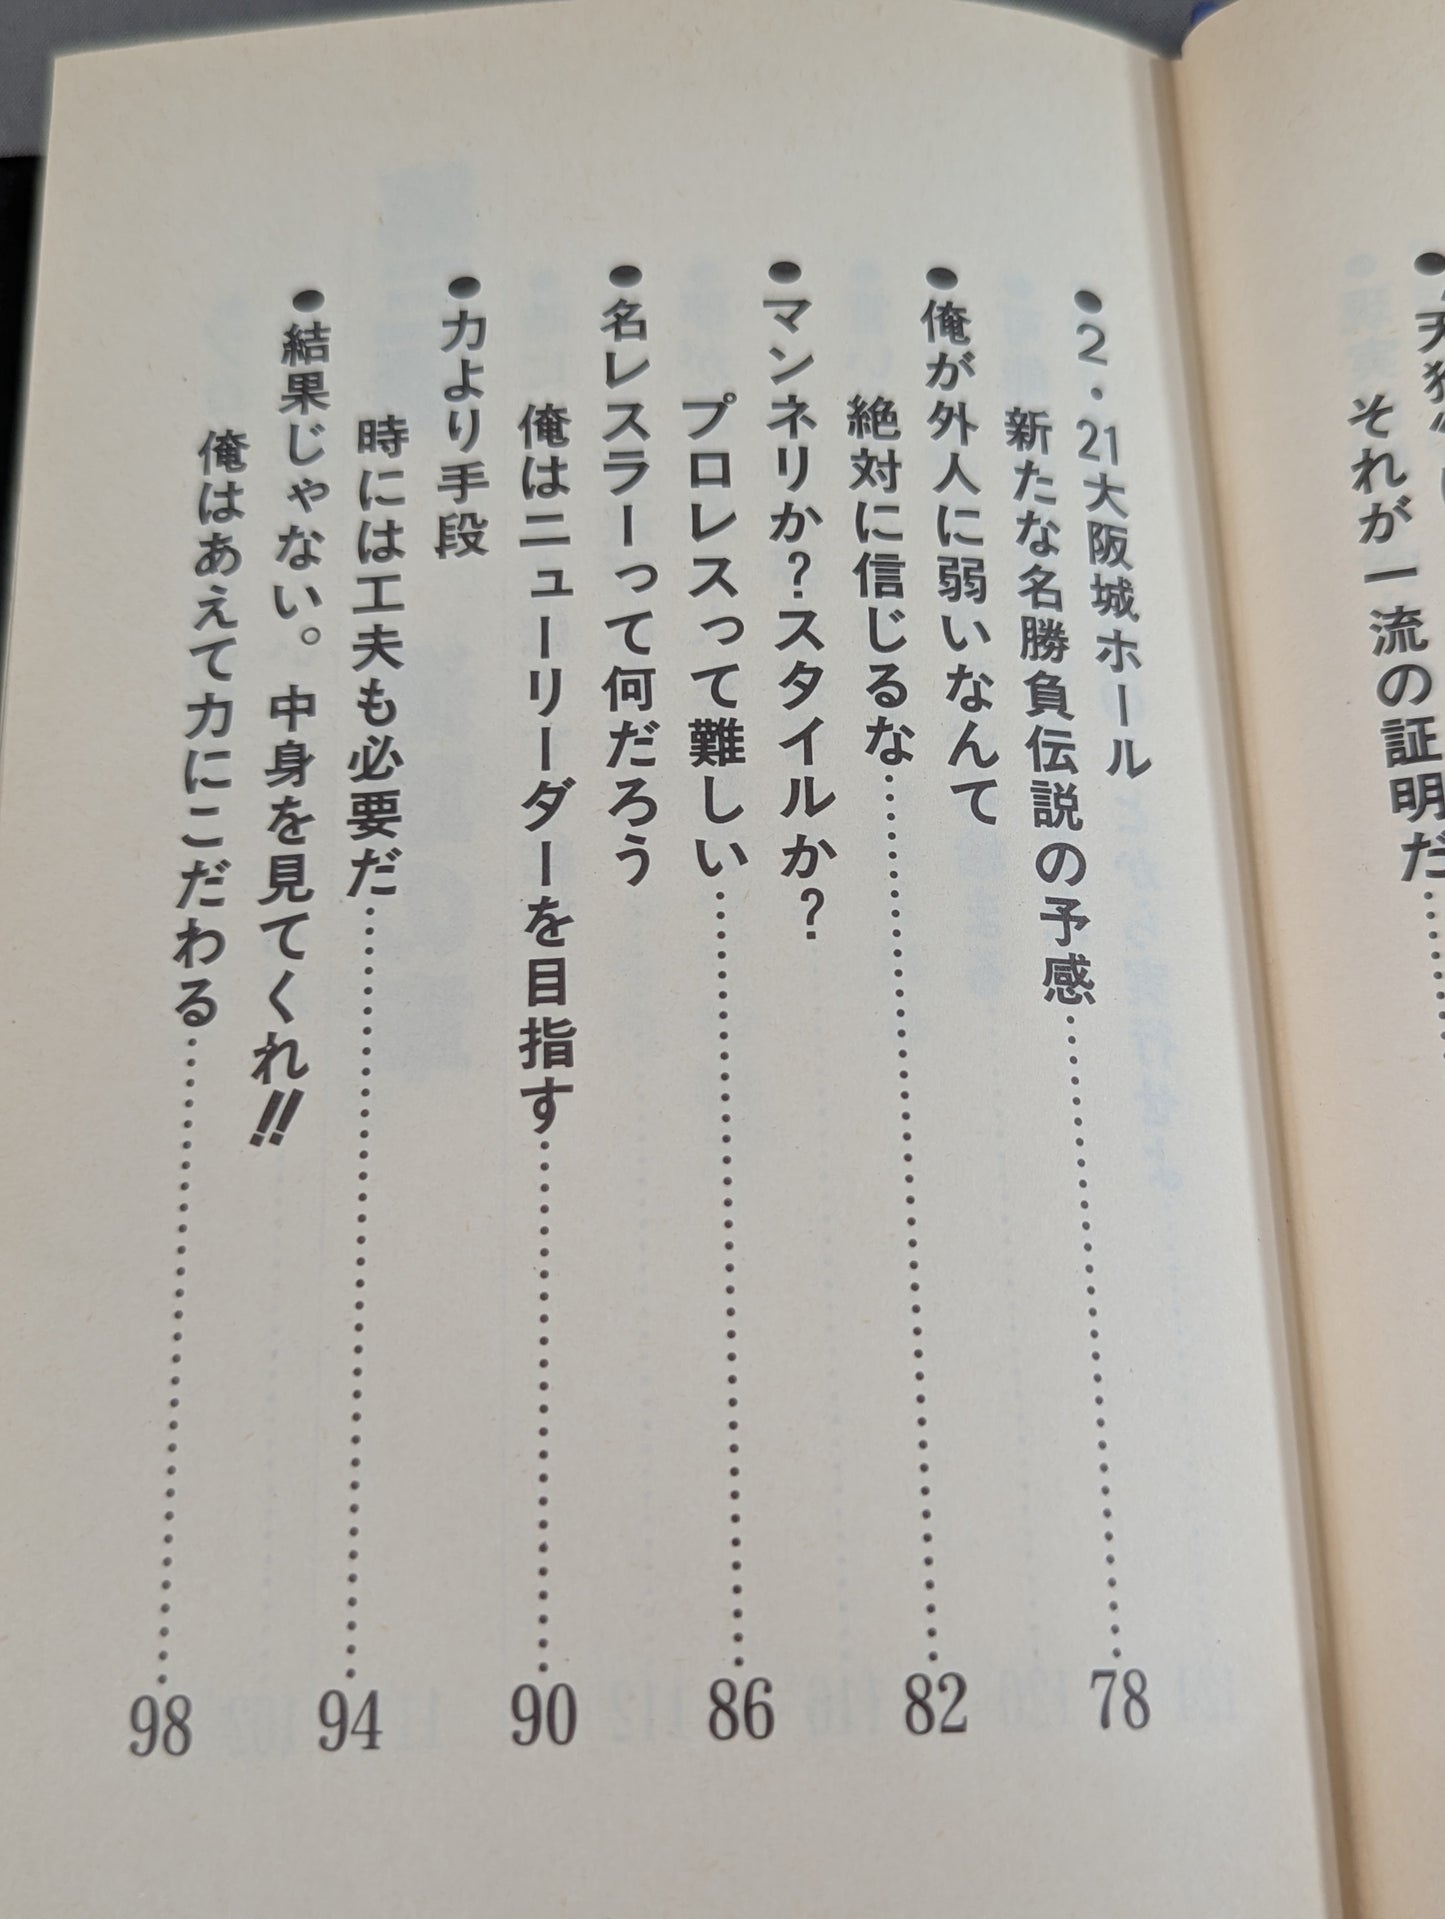 それが一流の証明だ
●2・21大阪城ホール
新たな名勝負伝説の予感……78
●俺が外人に弱いなんて
絶対に信じるな……82
●マンネリか？スタイルか？
プロレスって難しい……86
●名レスラーって何だろう
俺はニューリーダーを目指す……90
●力より手段
時には工夫も必要だ……94
●結果じゃない。中身を見てくれ!!
俺はあえて力にこだわる……98